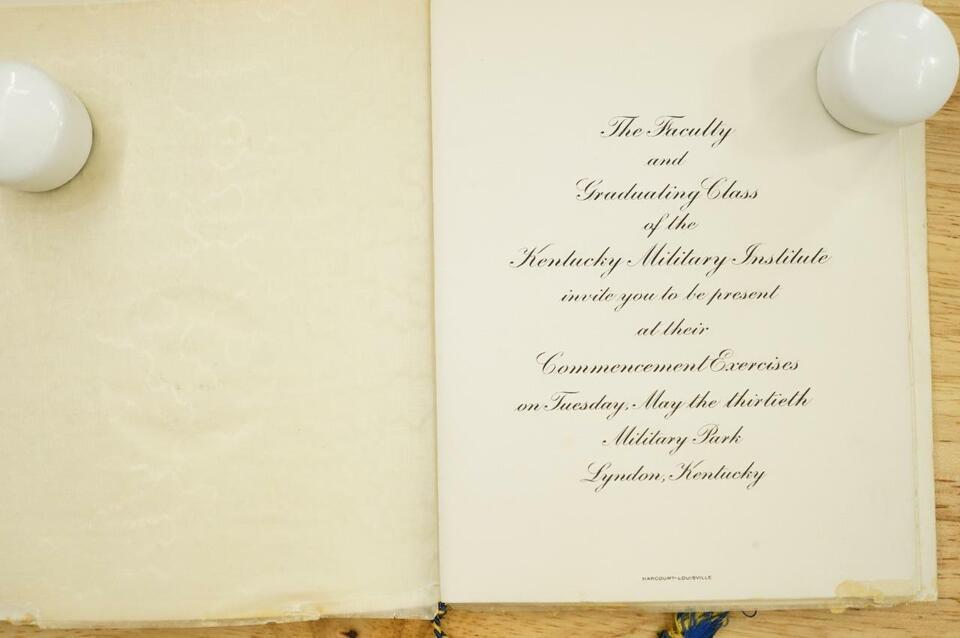 The Faculty
and
Graduating Class
of the
Kentucky Military Institute
invite you to be present
at their
Commencement Exercises
on Tuesday, May the thirtieth
Military Park
Lyndon, Kentucky
HARCOURT-LOUISVILLE